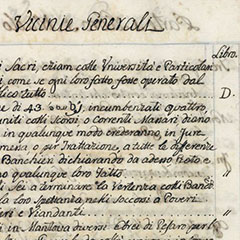 Vicinie, Generali
Libro.
i Sacri, etiam colle Università e Particolari
i come se ogni loro fatto fosse operato dal
lico tutto D.
e di 43. incumbenzati quattro,
uniti colli Scossi, o Correnti Massari diano
in qualunque modo crederanno, in Jure
mena o per Trattazione, a tutte le diferenze
Banchieri dichiarando da adesso rato e
mo qualunque loro fatto. "
li Sei a terminare la Vertenza colli Banch
la loro Spettanza nelli Soccorsi a Poveri
eri e Viandanti. "
in Mantova diversi Ebrei di Pesaro per le